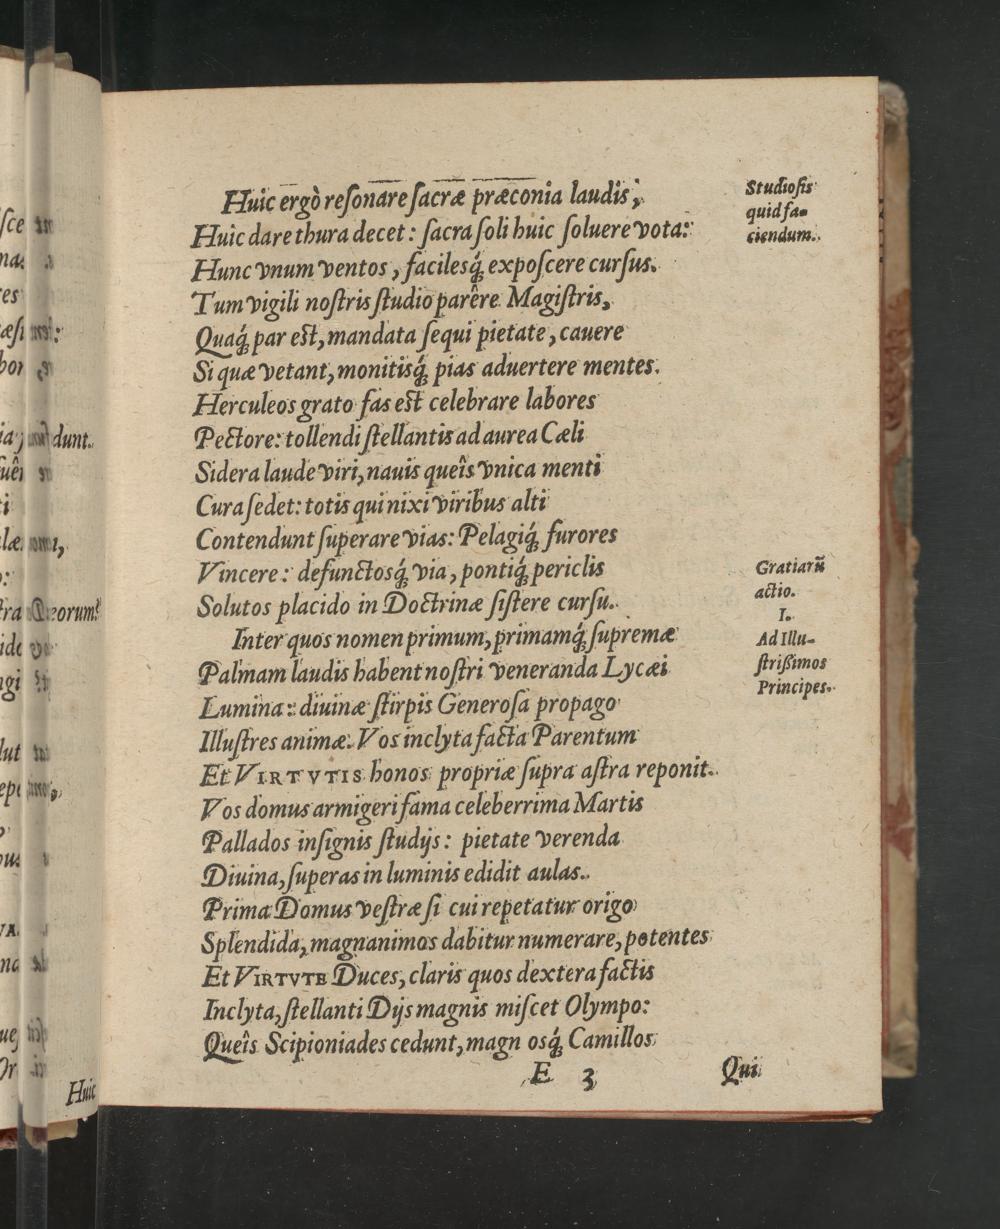 Huic ergò reſonare ſacræ præconia laudis,
Huic dare thura decet: ſacra ſoli huic ſoluere vota:
Hunc vnum ventos, facilesq́; expoſcere curſus.
Tum vigili noſtris ſtudio parêre Magiſtris,
Quaq́; par eſt, mandata ſequi pietate, cauere
Si quæ vetant, monitisq́; pias aduertere mentes.
Herculeos grato fas eſt celebrare labores
Pectore: tollendi ſtellantis ad aurea Cæli
Sidera laude viri, nauis queîs vnica menti
Cura ſedet: totis qui nixi viribus alti
Contendunt ſuperare vias: Pelagiq́; furores
Vincere: defunctosq́; via, pontiq́; periclis
Solutos placido in Doctrinæ ſiſtere curſu.
Inter quos nomen primum, primamq́; ſupremæ
Palmam laudis habent noſtri veneranda Lycæi
Lumina: diuinæ ſtirpis Generoſa propago
Illuſtres animæ. Vos inclyta facta Parentum
Et VIRTVTIS honos propriæ ſupra aſtra reponit.
Vos domus armigeri fama celeberrima Martis
Pallados inſignis ſtudijs: pietate verenda
Diuina, ſuperas in luminis edidit aulas.
Prima Domus veſtræ ſi cui repetatur origo
Splendida, magnanimos dabitur numerare, potentes
Et VIRTVTE Duces, claris quos dextera factis
Inclyta, ſtellanti Dijs magnis miſcet Olympo:
Queîs Scipioniades cedunt, magn osq́; Camillos
E 3 Qui
Studioſis
quid fa-
ciendum.
Gratiarū
actio.
I.
Ad Illu-
ſtriſsimos
Principes.
dunt.
eorum?
Huic